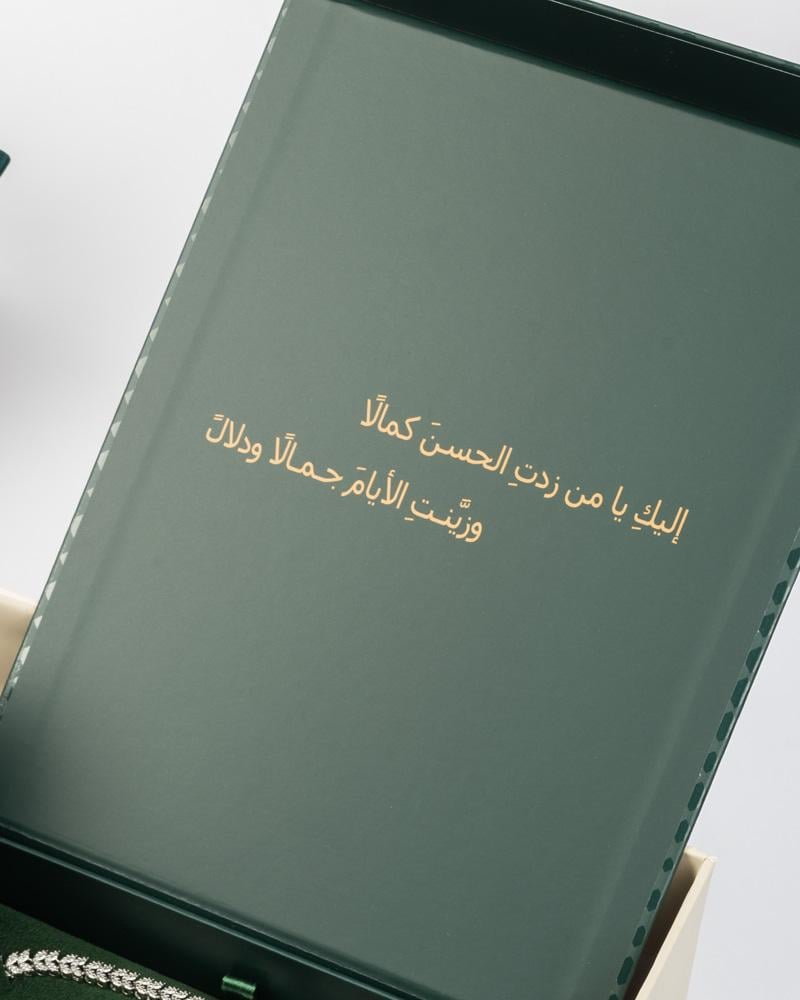 إليكِ يا من زدتِ الحسنَ كمالًا
وزيَّنتِ الأيامَ جمالًا ودلالً